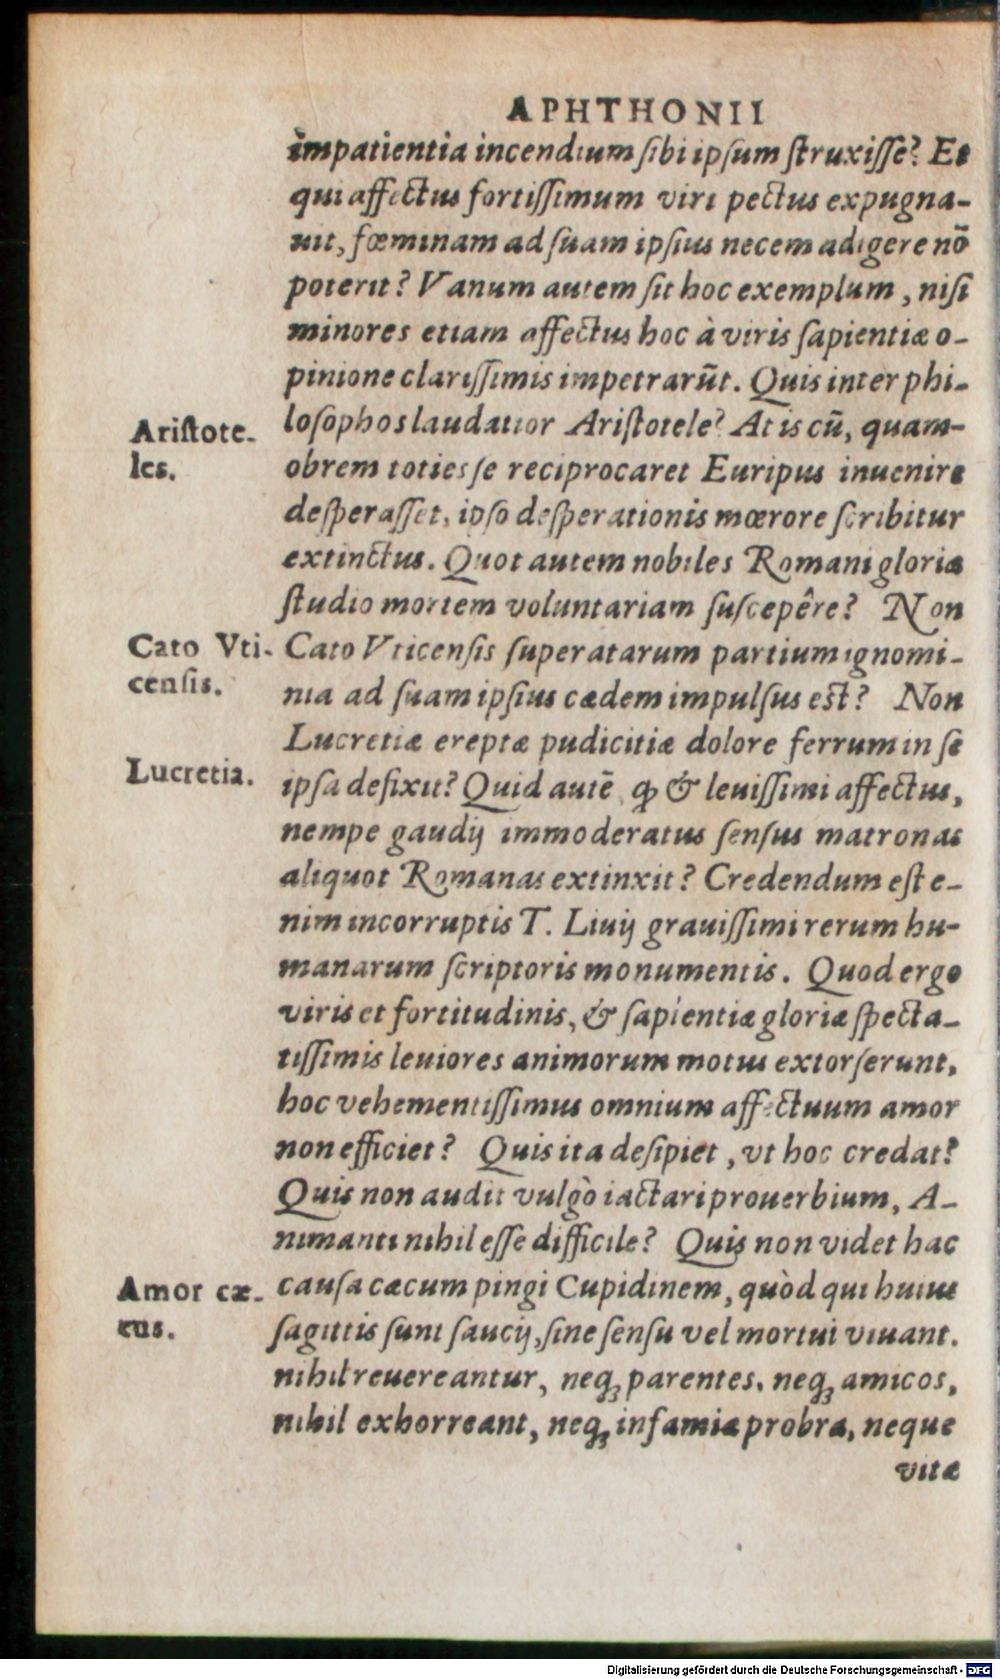 APHTHONII
impatientia incendium ſibi ipſum ſtruxiſſe? Et
qui affectus fortiſſimum viri pectus expugna-
uit, fœminam ad ſuam ipſius necem adigere nō
poterit? Vanum autem ſit hoc exemplum, niſi
minores etiam affectus hoc à viris ſapientiæ o-
pinione clariſſimis impetrarūt. Quis inter phi-
loſophos laudatior Ariſtotele? At is cū, quam-
Ariſtote-
les.
obrem toties ſe reciprocaret Euripus inuenire
deſperaſſet, ipſo deſperationis mœrore ſcribitur
extinctus. Quot autem nobiles Romani gloriæ
ſtudio mortem voluntariam ſuſcepêre? Non
Cato Vti-
cenſis.
Cato Vticenſis ſuperatarum partium ignomi-
nia ad ſuam ipſius cædem impulſus eſt? Non
Lucretiæ ereptæ pudicitiæ dolore ferrum in ſe
Lucretia.
ipſa defixit? Quid autē, ꝙ & leuiſſimi affectus,
nempe gaudij immoderatus ſenſus matronas
aliquot Romanas extinxit? Credendum eſt e-
nim incorruptis T. Liuij grauiſſimi rerum hu-
manarum ſcriptoris monumentis. Quod ergo
viris et fortitudinis, & ſapientiæ gloriæ ſpecta-
tiſſimis leuiores animorum motus extorſerunt,
hoc vehementiſſimus omnium affectuum amor
non efficiet? Quis ita deſipiet, vt hoc credat?
Quis non audit vulgò iactari prouerbium, A-
nimanti nihil eſſe difficile? Quis non videt hac
Amor cæ-
cus.
cauſa cæcum pingi Cupidinem, quòd qui huius
ſagittis ſunt ſaucij, ſine ſenſu vel mortui viuant.
nihil reuereantur, neqꝫ parentes, neqꝫ amicos,
nihil exhorreant, neqꝫ infamiæ probra, neque
vitæ
Digitalisierung gefördert durch die Deutsche Forschungsgemeinschaft - DFG